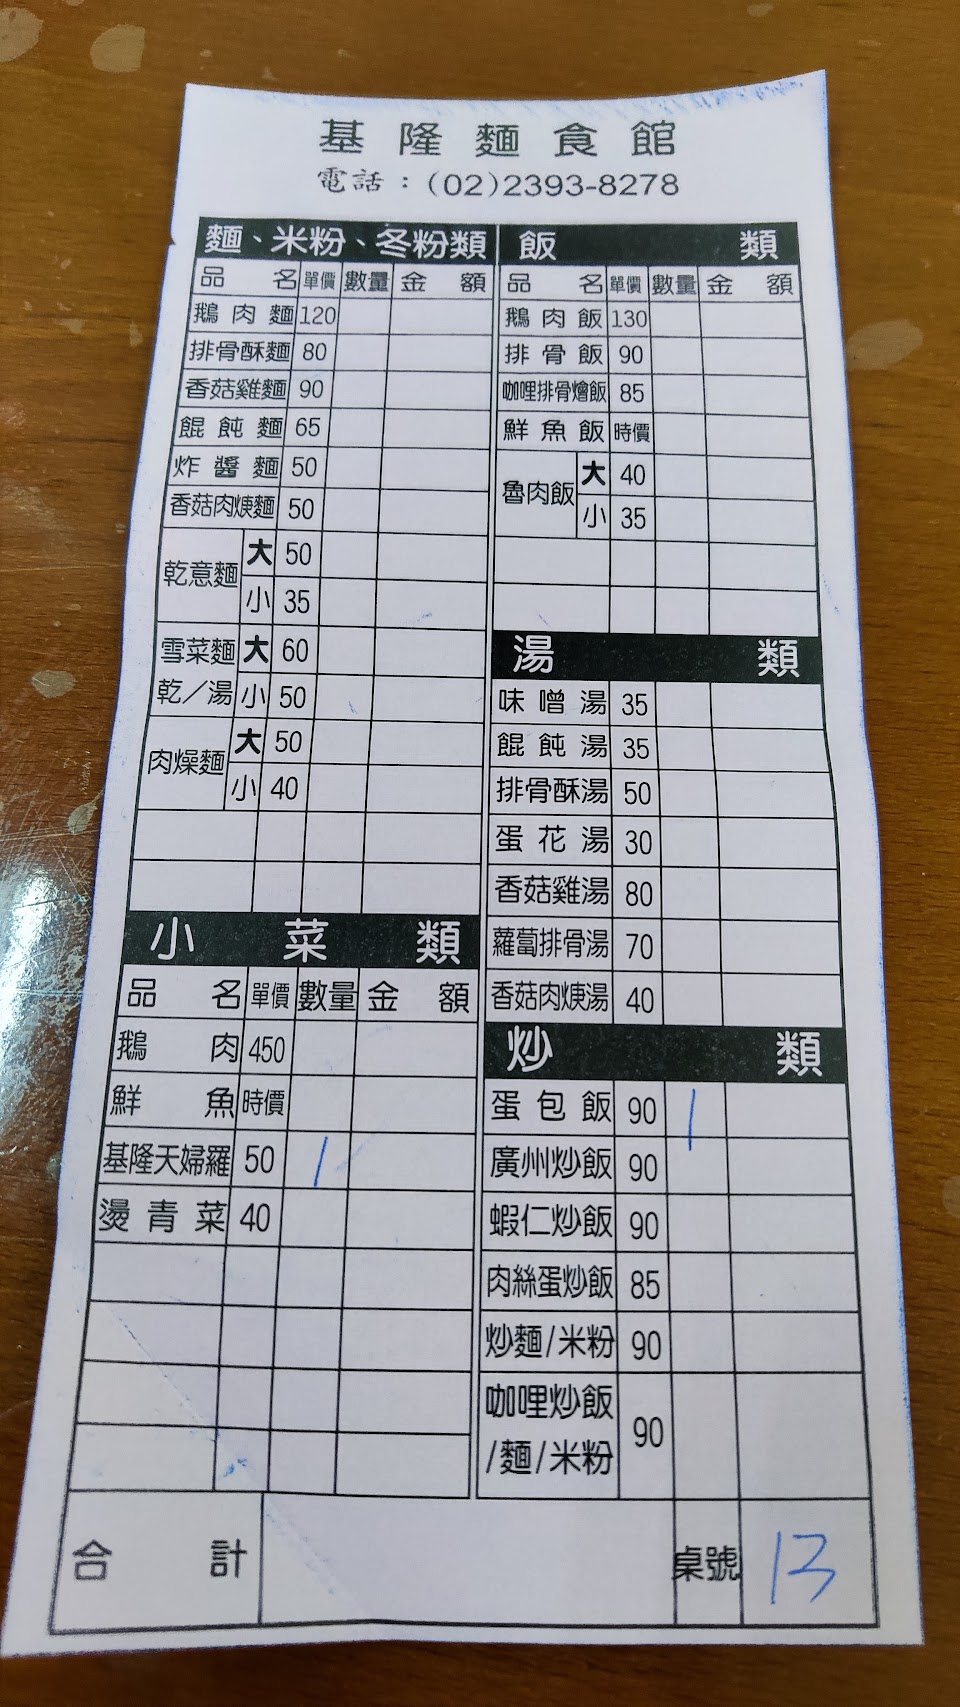 基隆麵食館
電話：(02)2393-8278
麵、米粉、冬粉類
品名 單價 數量 金額
鵝肉麵 120
排骨酥麵 80
香菇雞麵 90
餛飩麵 65
炸醬麵 50
香菇肉焿麵 50
乾意麵 大 50
小 35
雪菜麵 大 60
乾／湯 小 50
肉燥麵 大 50
小 40
小菜類
品名 單價 數量 金額
鵝肉 450
鮮魚 時價
基隆天婦羅 50 1
燙青菜 40
飯類
品名 單價 數量 金額
鵝肉飯 130
排骨飯 90
咖哩排骨燴飯 85
鮮魚飯 時價
魯肉飯 大 40
小 35
湯類
味噌湯 35
餛飩湯 35
排骨酥湯 50
蛋花湯 30
香菇雞湯 80
蘿蔔排骨湯 70
香菇肉焿湯 40
炒類
蛋包飯 90 1
廣州炒飯 90
蝦仁炒飯 90
肉絲蛋炒飯 85
炒麵/米粉 90
咖哩炒飯
/麵/米粉 90
合計
桌號 13